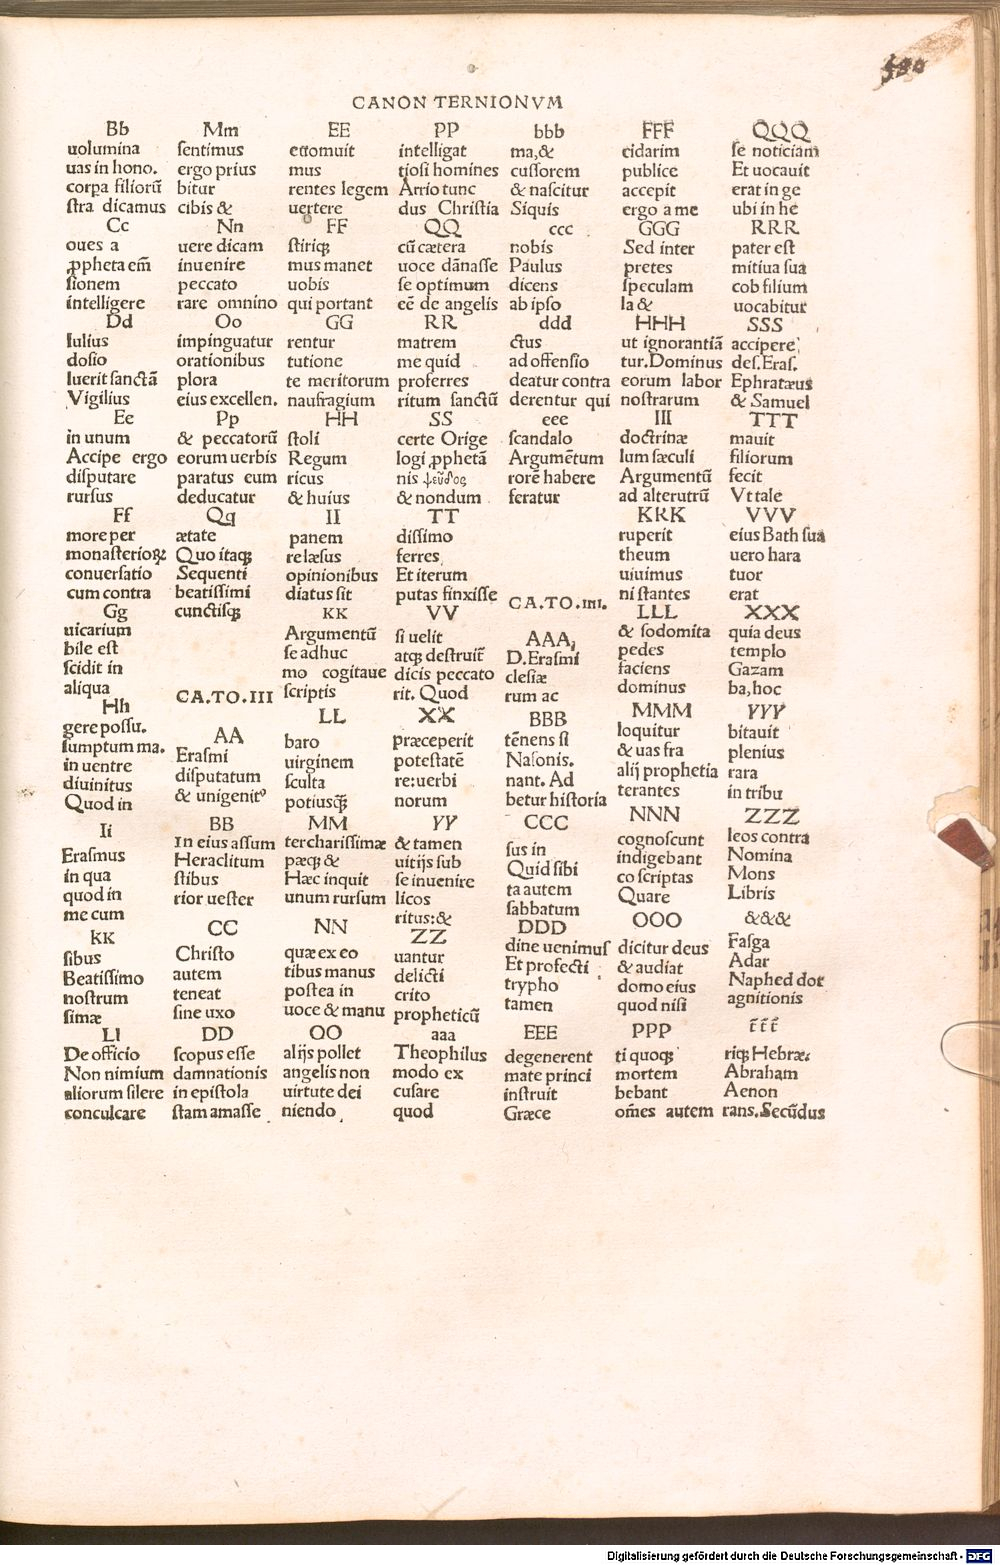 CANON TERNIONVM
Bb
uolumina
uas in hono.
corpa filiorū
stra dicamus
Cc
oues a
ꝓpheta em̄
sionem
intelligere
Dd
Iulius
dosio
luerit sanctā
Vigilius
Ee
in unum
Accipe ergo
disputare
rursus
Ff
more per
monasterioꝝ
conuersatio
cum contra
Gg
uicarium
bile est
scidit in
aliqua
Hh
gere possu.
sumptum ma.
in uentre
diuinitus
Quod in
Ii
Erasmus
in qua
quod in
me cum
KK
sibus
Beatissimo
nostrum
simæ
Ll
De officio
Non nimium
aliorum silere
conculcare
Mm
sentimus
ergo prius
bitur
cibis &
Nn
uere dicam
inuenire
peccato
rare omnino
Oo
impinguatur
orationibus
plora
eius excellen.
Pp
& peccatorū
eorum uerbis
paratus eum
deducatur
Qq
ætate
Quo itaqꝫ
Sequenti
beatissimi
cunctisqꝫ
CA.TO.III
AA
Erasmi
disputatum
& unigenitꝰ
BB
In eius assum
Heraclitum
stibus
rior uester
CC
Christo
autem
teneat
sine uxo
DD
scopus esse
damnationis
in epistola
stam amasse
EE
ettomuit
mus
rentes legem
uertere
FF
stiriqꝫ
mus manet
uobis
qui portant
GG
rentur
tutione
te meritorum
naufragium
HH
stoli
Regum
ricus
& huius
II
panem
relæsus
opinionibus
diatus sit
KK
Argumentū
se adhuc
mo cogitaue
scriptis
LL
baro
uirginem
sculta
potiusqꝫ
MM
tercharissimæ
pæqꝫ &
Hæc inquit
unum rursum
NN
quæ ex eo
tibus manus
postea in
uoce & manu
OO
alijs pollet
angelis non
uirtute dei
niendo
PP
intelligat
tiosi homines
Arrio tunc
dus Christia
QQ
cū cætera
uoce dānasse
se optimum
eē de angelis
RR
matrem
me quid
proferres
ritum sanctū
SS
certe Orige
logi ꝓphetā
nis ψεῦδος
& nondum
TT
dissimo
ferres
Et iterum
putas finxisse
VV
si uelit
atqꝫ destruit̄
dicis peccato
rit. Quod
XX
præceperit
potestatē
re:uerbi
norum
YY
& tamen
uitijs sub
se inuenire
licos
ritus:&
ZZ
uantur
delicti
crito
propheticū
aaa
Theophilus
modo ex
cusare
quod
bbb
ma,&
cussorem
& nascitur
Siquis
ccc
nobis
Paulus
dicens
ab ipso
ddd
ctus
ad offensio
deatur contra
derentur qui
eee
scandalo
Argumētum
rorē habere
feratur
CA.TO.IIII.
AAA
D.Erasmi
clesiæ
rum ac
BBB
tēnens si
Nasonis.
nant. Ad
betur historia
CCC
sus in
Quid sibi
ta autem
sabbatum
DDD
dine uenimus
Et profecti
trypho
tamen
EEE
degenerent
mate princi
instruit
Græce
FFF
cidarim
publice
accepit
ergo a me
GGG
Sed inter
pretes
speculam
la &
HHH
ut ignorantiā
tur.Dominus
eorum labor
nostrarum
III
doctrinæ
lum sæculi
Argumentū
ad alterutrū
KKK
ruperit
theum
uiuimus
ni stantes
LLL
& sodomita
pedes
faciens
dominus
MMM
loquitur
& uas fra
alij prophetia
terantes
NNN
cognoscunt
indigebant
co scriptas
Quare
OOO
dicitur deus
& audiat
domo eius
quod nisi
PPP
ti quoqꝫ
mortem
bebant
om̄es autem
QQQ
se noticiam
Et uocauit
erat in ge
ubi in he
RRR
pater est
mitiua sua
cob filium
uocabitur
SSS
accipere
des.Eras.
Ephratæus
& Samuel
TTT
mauit
filiorum
fecit
Vt tale
VVV
eius Bath sua
uero hara
tuor
erat
XXX
quia deus
templo
Gazam
ba,hoc
YYY
bitauit
plenius
rara
in tribu
ZZZ
leos contra
Nomina
Mons
Libris
&&&
Fasga
Adar
Naphed dor
agnitionis
riqꝫ Hebræi
Abraham
Aenon
rans.Secūdus
Digitalisierung gefördert durch die Deutsche Forschungsgemeinschaft - DFG